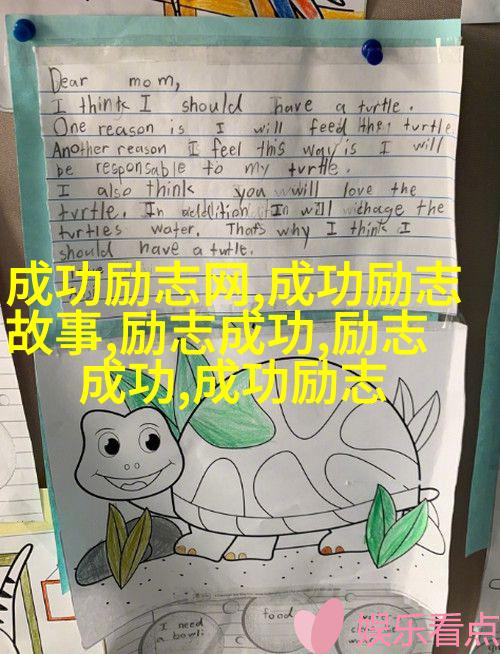 Dear mom,
I think I should have a turtle.
One reason is I will feed the turtle.
Another reason I feel this way is I will
be responsable to my turtle.
I also think you will love the
turtle. In addition I will chage the
turtles water. That's why I think I
should have a turtle.
成功励志网,成功励志
故事,励志成功,励志
成功,成功励志
I need
a bowl
food
娱乐看点